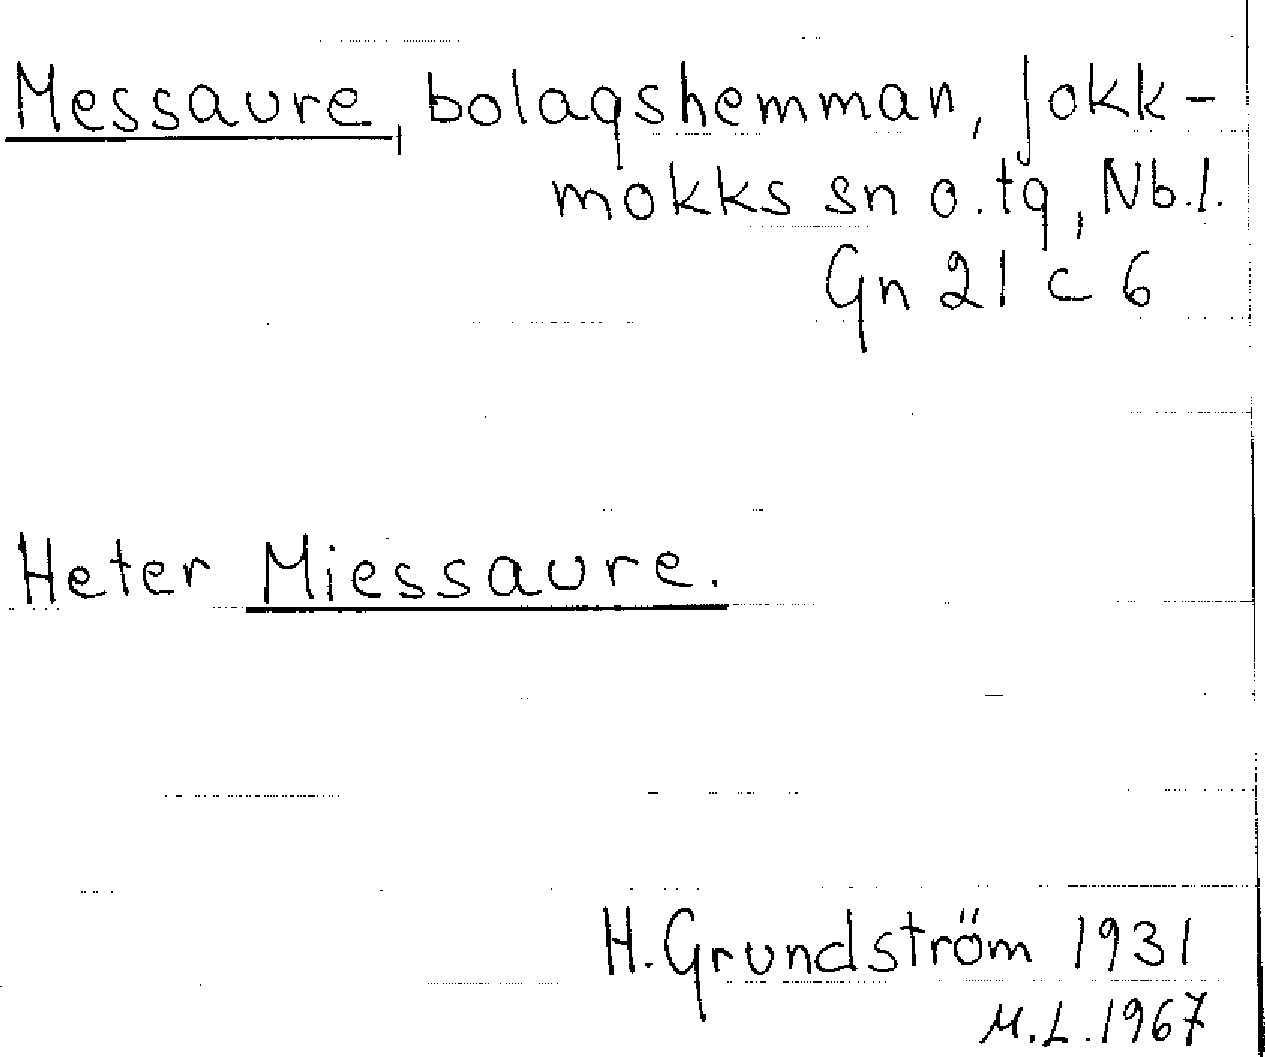 Messaure, bolagshemman, Jokk-
mokks sn o. tg, Nb. l.
Gn 21 c 6
Heter Miessaure.
H. Grundström 1931
M. L. 1967